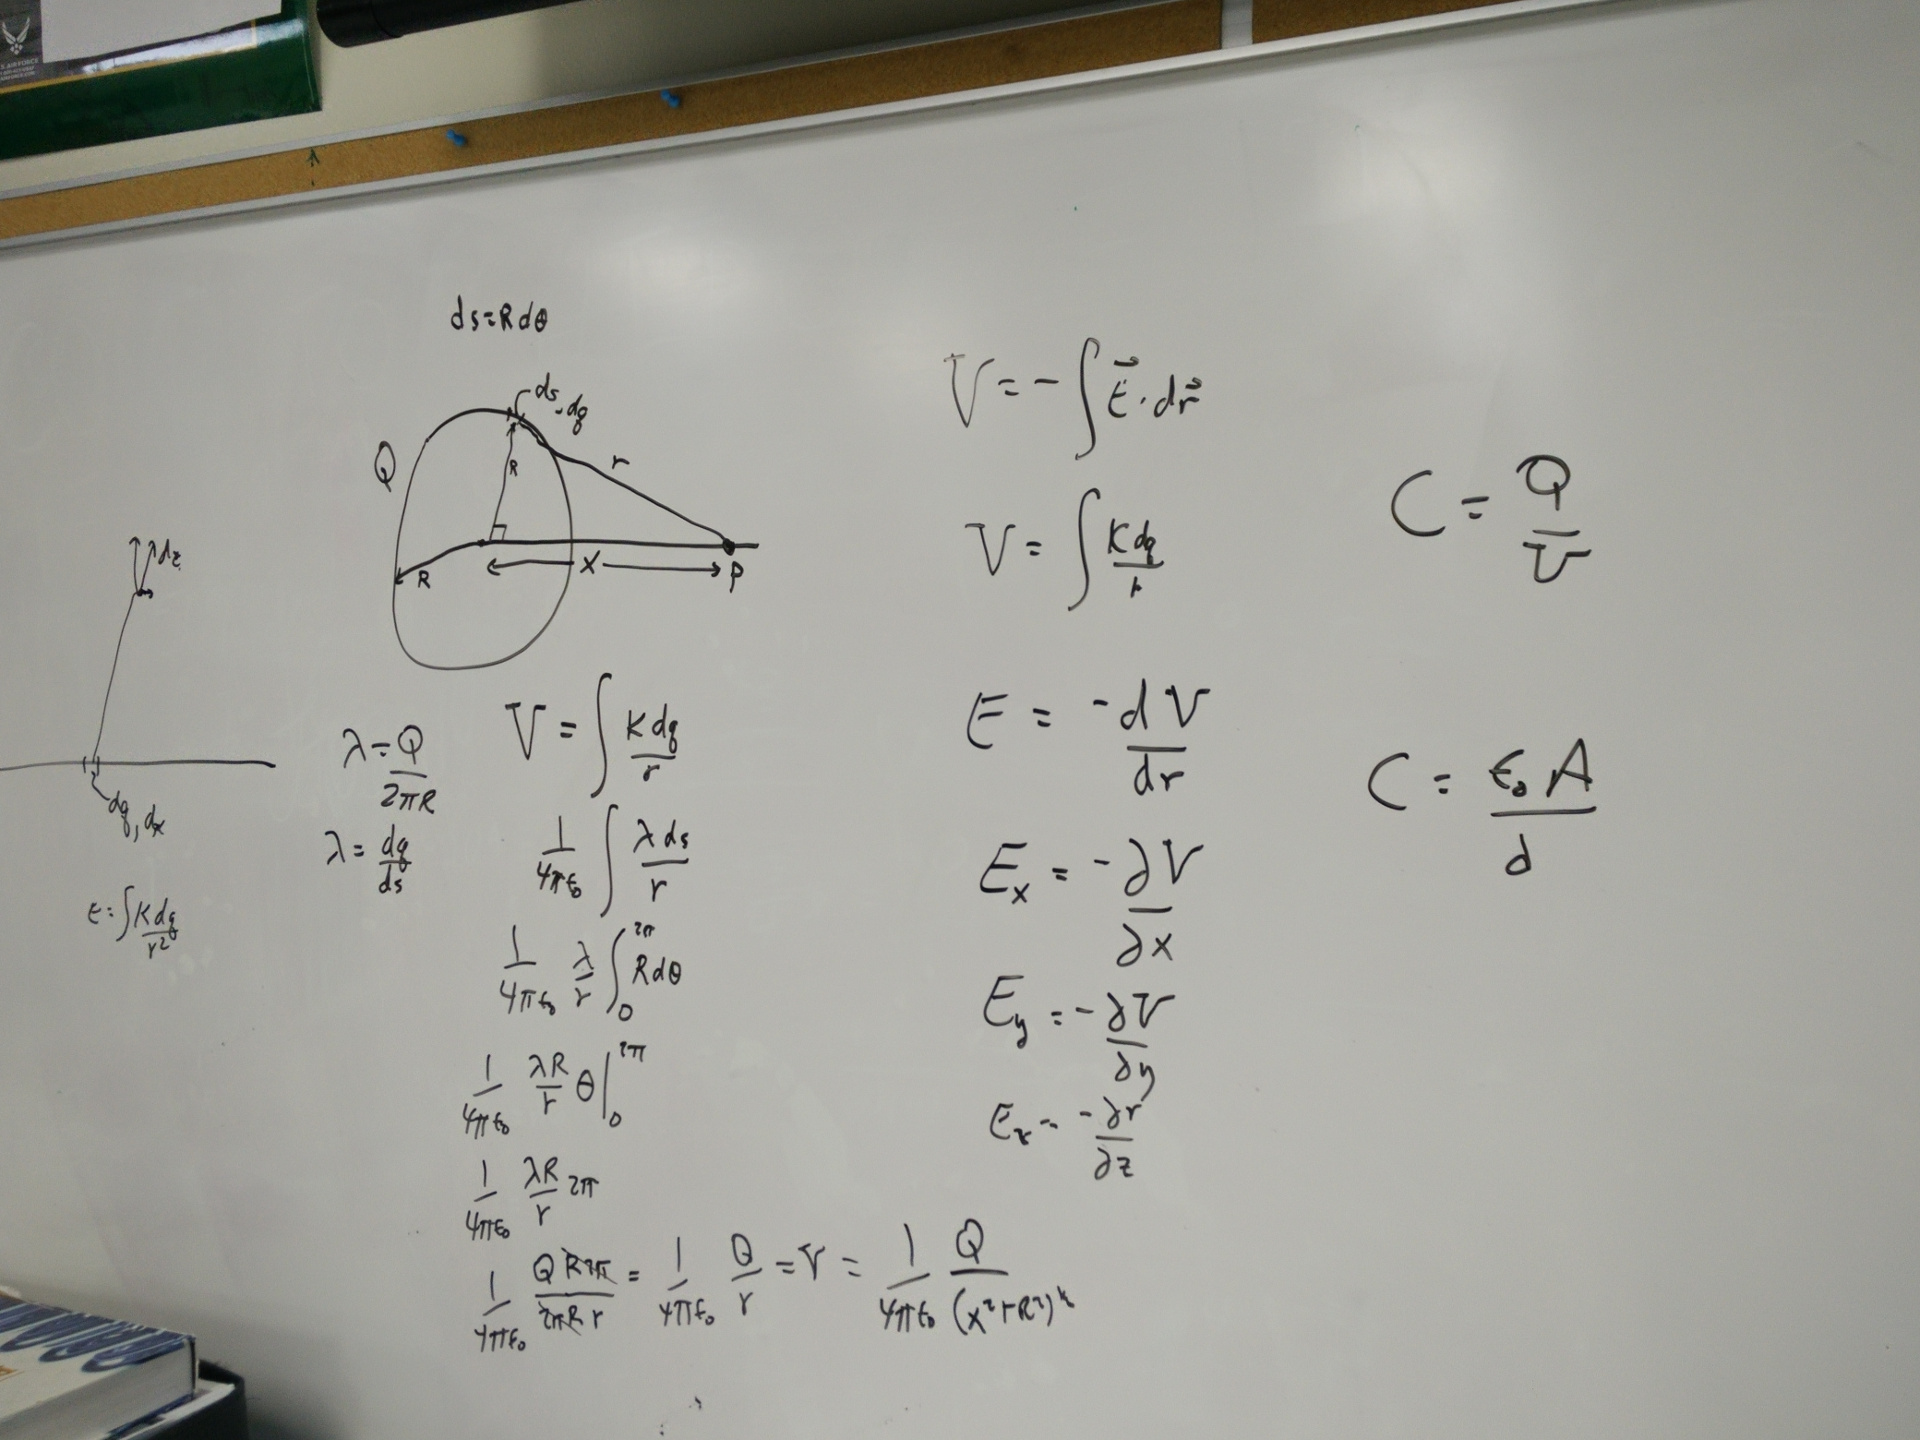 U.S. AIR FORCE
ds=Rdθ
ds, dq
Q
R
r
R
X
P
dq, dx
E=∫Kdq/r²
λ=Q/2πR
λ=dq/ds
V=∫Kdq/r
1/4πε₀ ∫λds/r
1/4πε₀ λ/r ∫₀^2π Rdθ
1/4πε₀ λR/r θ|₀^2π
1/4πε₀ λR/r 2π
1/4πε₀ QR2π/2πRr = 1/4πε₀ Q/r = V = 1/4πε₀ Q/(x²+R²)^½
V=-∫E⃗·dr⃗
V=∫Kdq/r
E=-dV/dr
Eₓ=-∂V/∂x
E_y=-∂V/∂y
E_z=-∂r/∂z
C=Q/V
C=ε₀A/d